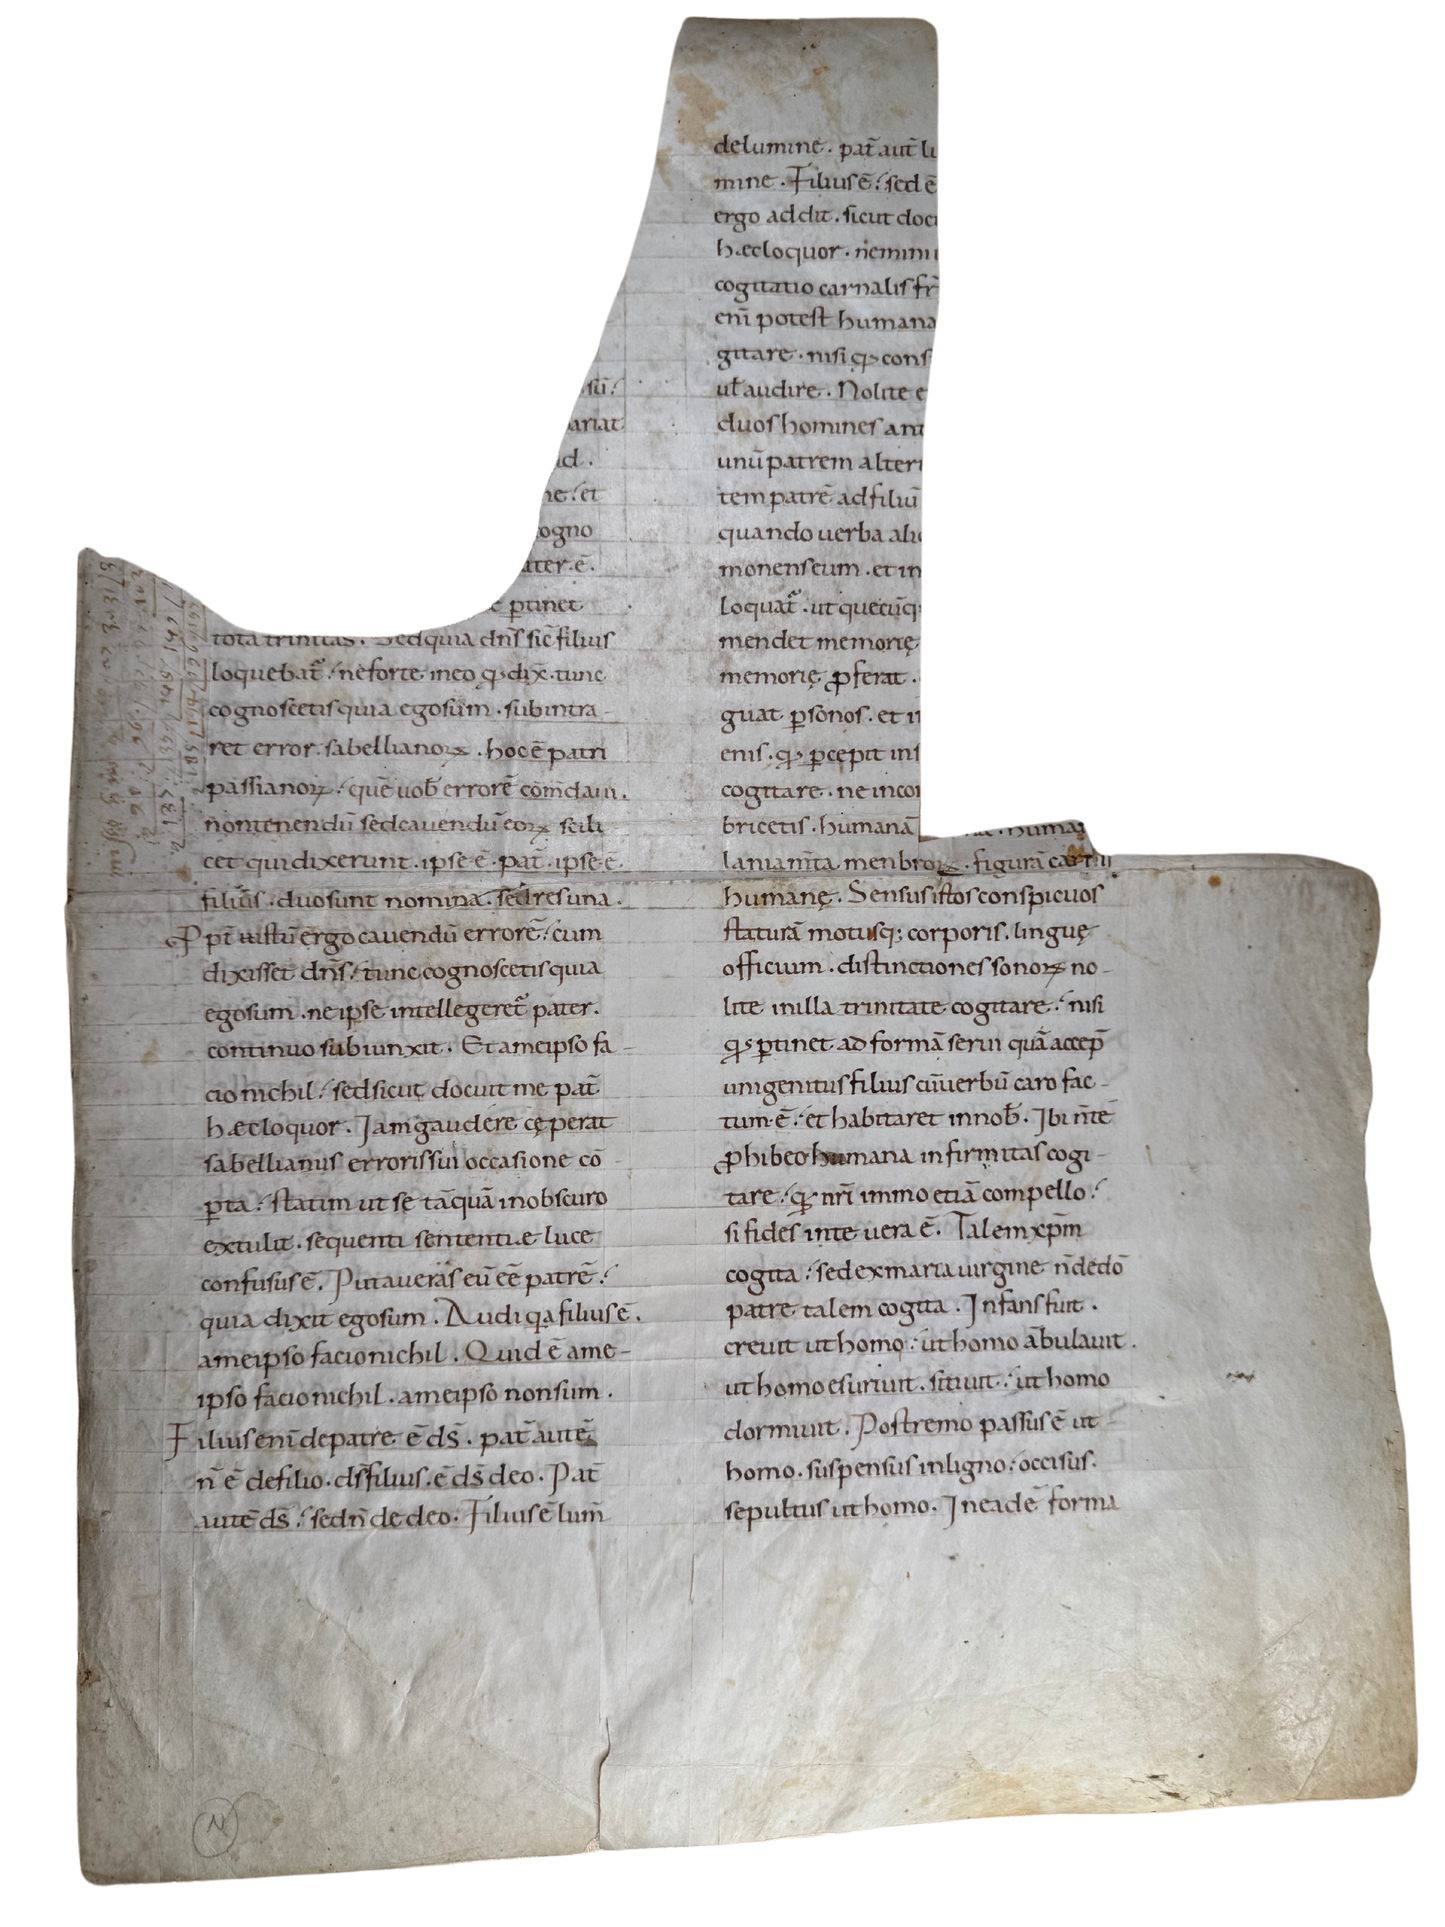 sū.
ariat
id.
ne. et
ogno
ater. ē.
ꝑtinet
tota trinitas. Sed quia dn̄s sic̄ filius
loquebat᷑. ne forte in eo ꝙ dix̄. tunc
cognoscetis quia ego sum. subintra-
ret error sabellianoꝝ. hoc ē patri
passianoꝝ. quē uob̄ errorē com̄daui.
non tenendū sed cauendū eoꝝ scili
cet qui dixerunt. ipse ē pat̄. ipse ē
filius. duo sunt nomina. sed res una.
Ꝓpt̄ istū ergo cauendū errorē. cum
dixisset dn̄s. tunc cognoscetis quia
ego sum. ne ipse intellegeret᷑ pater.
continuo subiunxit. Et a me ipso fa-
cio nichil. sed sicut docuit me pat̄
hæc loquor. Iam gaudere cęperat
sabellianus erroris sui occasione cō
ꝑta. statim ut se tāquā in obscuro
extulit. sequenti sententiæ luce
confusus ē. Putaueras eū eē patrē.
quia dixit ego sum. Audi qa filius ē.
a me ipso facio nichil. Quid ē a me-
ipso facio nichil. a me ipso non sum.
Filius eni de patre ē ds̄. pat̄ autē
n̄ ē de filio. ds̄ filius. ē ds̄ deo. Pat̄
autē ds̄. sed n̄ de deo. Filius ē lum̄
de lumine. pat̄ aut̄ lu
mine. Filius ē. sed ē
ergo addit. sicut docu
hæc loquor. nemini
cogitatio carnalis fr̄
eni potest humana
gitare. nisi ꝙ cons
ul̄ audire. Nolite e
duos homines ant
unū patrem alteru
tem patrē ad filiū
quando uerba ali
monens eum. et in
loquat᷑. ut quecūq
mendet memorię
memorię ꝓferat.
guat ꝑ sonos. et i
enis. ꝙ ꝑcepit ins
cogitare. ne inco
bricetis. humanā humar
laniam̄ta menbroꝝ. figurā carni
humanę. Sensus istos conspicuos
staturā motusq; corporis. linguę
officium. distinctiones sonoꝝ no-
lite in illa trinitate cogitare. nisi
ꝙ ꝑtinet ad formā serui quā accep̄
unigenitus filius cū uerbū caro fac-
tum ē. et habitaret in nob̄. Ibi n̄ te
ꝓhibeo humana infirmitas cogi-
tare. ꝙ nr̄i immo etiā compello.
si fides in te uera ē. Talem xp̄m
cogita. sed ex maria uirgine n̄ de dō
patre talem cogita. Infans fuit.
creuit ut homo. ut homo ābulauit.
ut homo esuriuit. sitiuit. ut homo
dormiuit. Postremo passus ē ut
homo. suspensus in ligno. occisus.
sepultus ut homo. In eadē forma
N